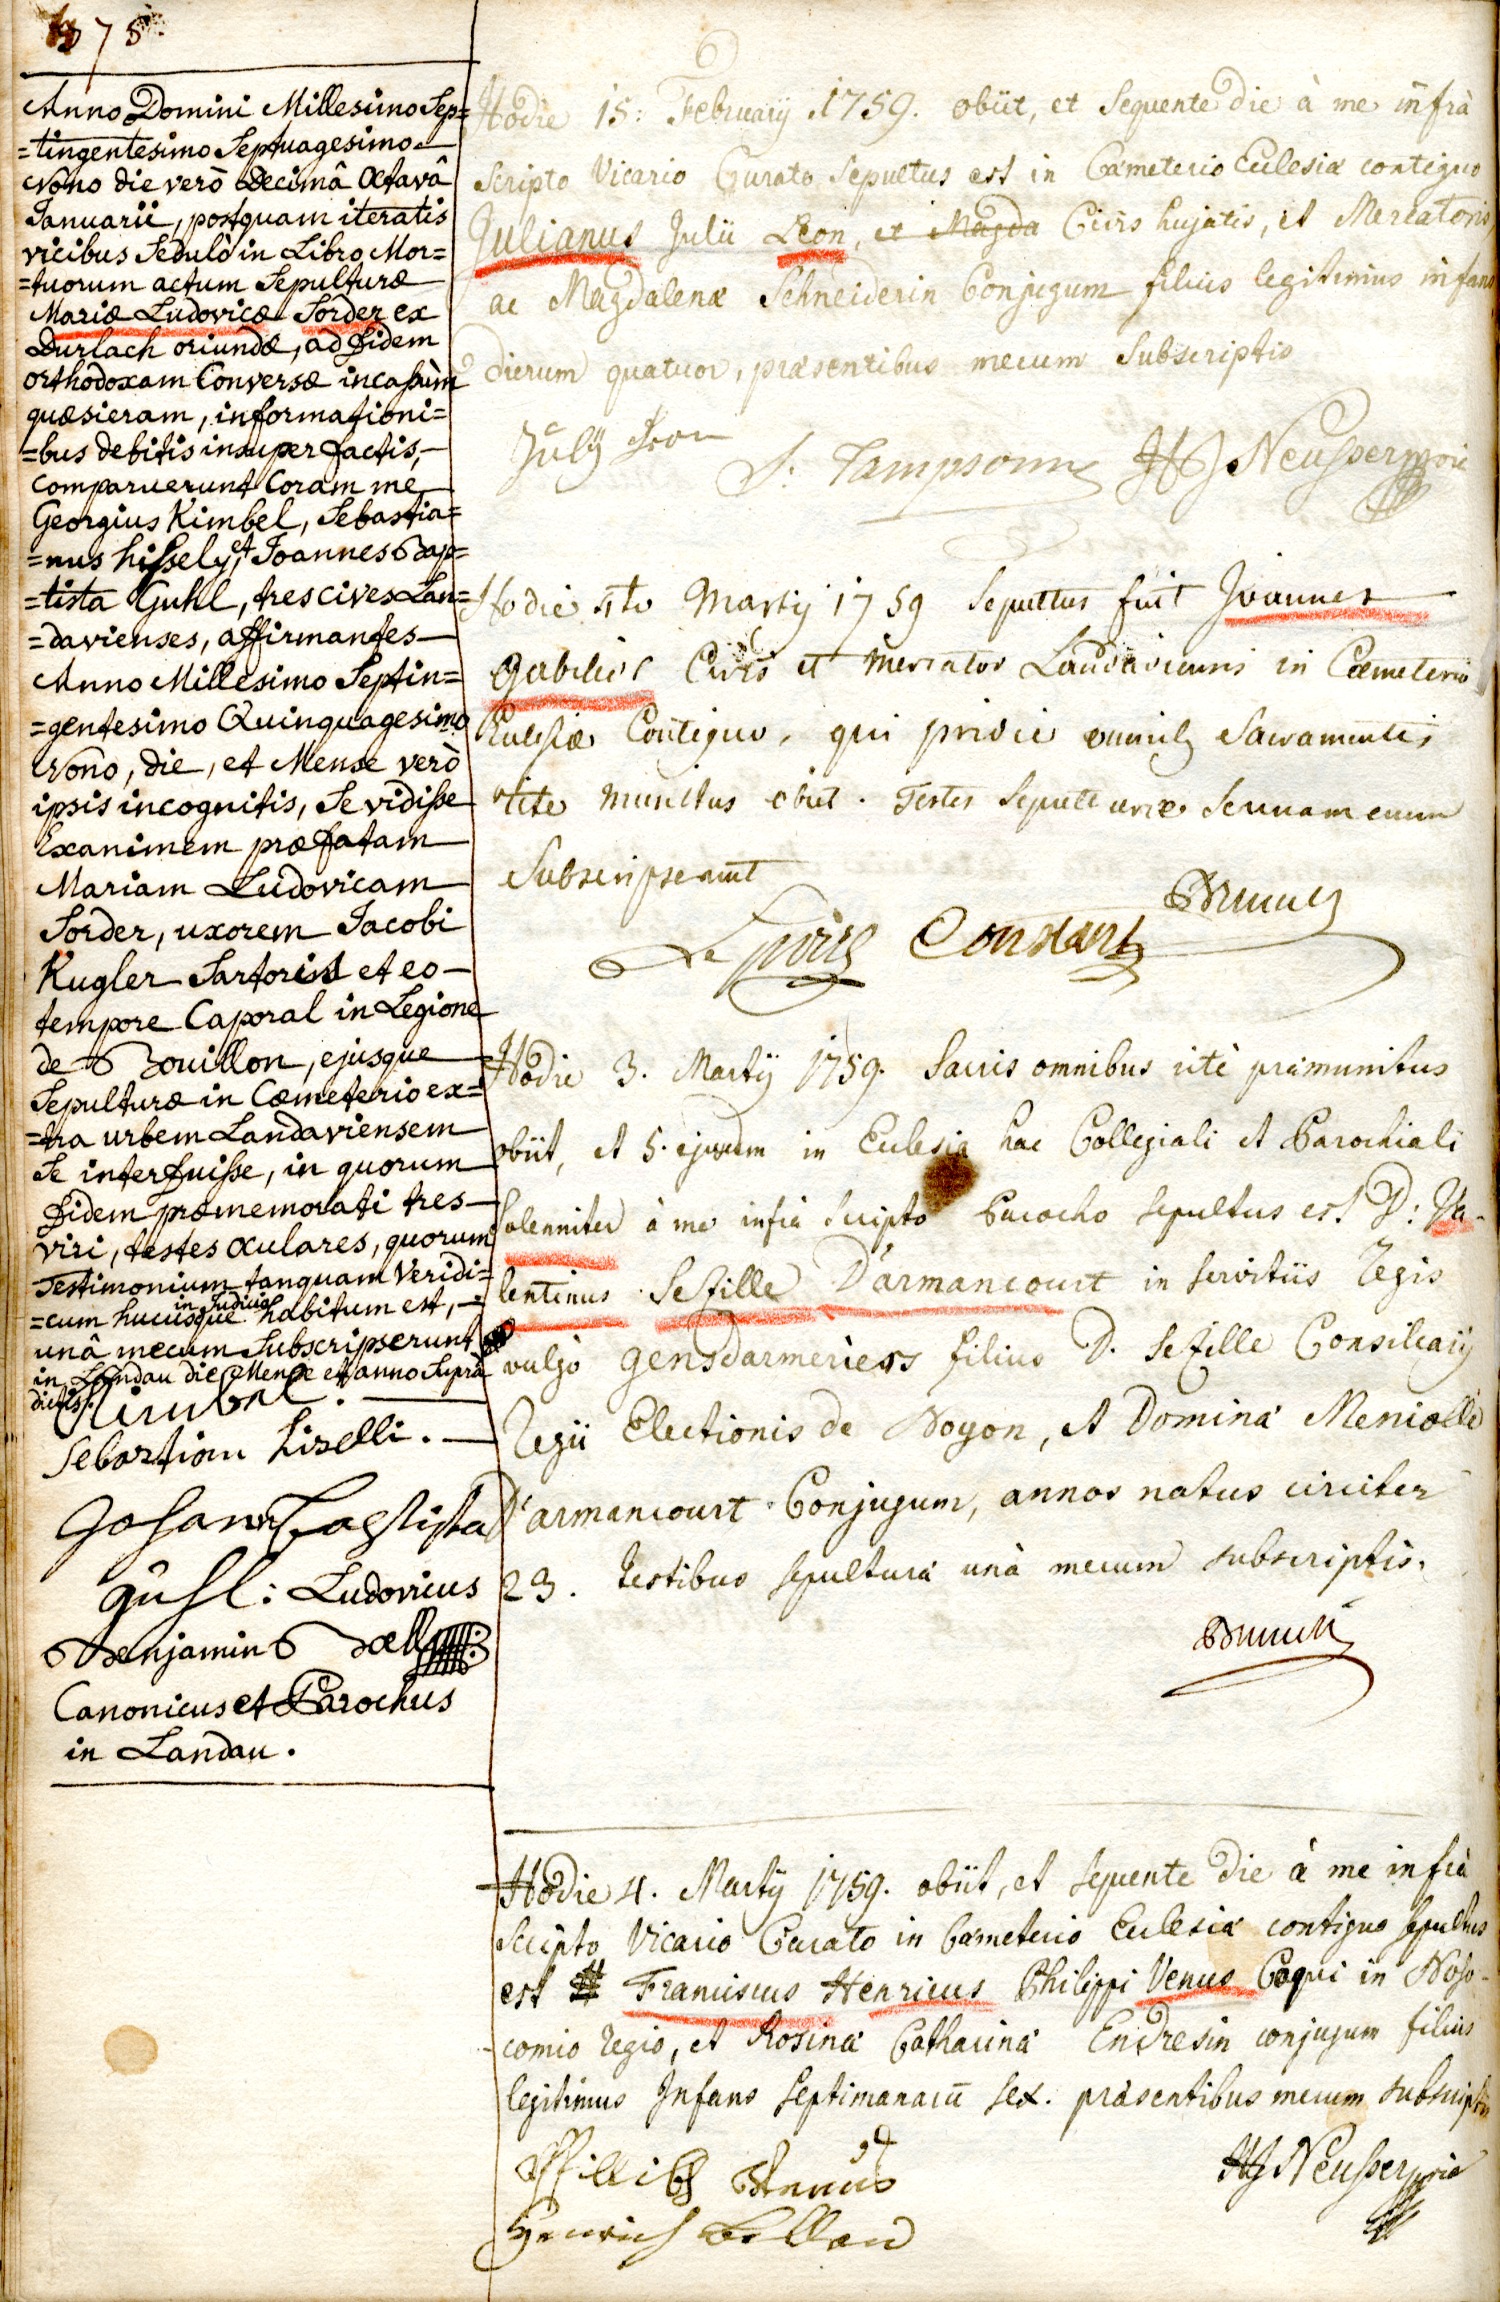 578
Anno Domini Millesimo Sep=
=tingentesimo Septuagesimo
Nono die verò Decimâ Octavâ
Januarii, postquam iteratis
vicibus Sedulò in Libro Mor=
=tuorum actum Sepulturæ
Mariæ Ludovicæ Sorder ex
Durlach oriundæ, ad fidem
orthodoxam Conversæ incassùm
quæsieram, informationi=
=bus debitis insuper factis,
comparuerunt Coram me
Georgius Kimbel, Sebastia=
=nus hissely, et Joannes Bap=
=tista Guhl, tres cives Lan=
=davienses, affirmantes
Anno Millesimo Septin=
=gentesimo Quinquagesimo
Nono, die, et Mense verò
ipsis incognitis, Se vidisse
Exanimem præfatam
Mariam Ludovicam
Sorder, uxorem Jacobi
Kugler Sartoris et eo
tempore Caporal in Legione
de Bouillon, ejusque
Sepulturæ in Cœmeterio ex=
=tra urbem Landaviensem
Se interfuisse, in quorum
fidem præmemorati tres
viri, testes oculares, quorum
Testimonium tanquam Veridi=
=cum hucusque in Judicio habitum est,
unâ mecum Subscripserunt
in Landau die Mense et anno Suprà
dictis.
Kimbel.
Sebastian hiselli.
Johann Baptista
Guhl: Ludovicus
Benjamin Boell
Canonicus et Parochus
in Landau.
Hodie 15: Februarij 1759. obiit, et Sequente die à me infrà
Scripto Vicario Curato Sepultus est in Cœmeterio Ecclesiæ contiguo
Julianus Julii Leon, et Magda Civis hujatis, et Mercatoris,
ac Magdalenæ Schneiderin Conjugum filius legitimus infans
dierum quatuor, præsentibus mecum Subscriptis
July Leon
S. Sampsonn HJ Neusser
Hodie 4to Martij 1759 Sepultus fuit Joannes
Civis et Mercator Landaviensis in Cœmeterio
Ecclesiæ Contiguo, qui pridie omnib Sacramentis
rite munitus obiit. Testes Sepulturæ
Subscripserunt
Constant
Hodie 3. Martij 1759. Sacris omnibus ritè præmunitus
obiit, et 5. ejusdem in Ecclesia hac Collegiali et Parochiali
Solemniter à me infrà scripto Parocho sepultus est D: Va-
lentinus Sezille D'armancourt in servitiis Regis
vulgò gensdarmeries filius D. Sezille Consiliarij
Regii Electionis de Noyon, et Dominæ Meniolle
D'armancourt Conjugum, annos natus circiter
23. testibus sepulturæ unà mecum subscriptis.
Hodie 4. Martij 1759. obiit, et sequente die à me infrà
scripto Vicario Curato in Cœmeterio Ecclesiæ contiguo sepultus
est Franciscus Henricus Philippi Venus Coqui in Noso-
comio regio, et Rosinæ Catharinæ Endresin conjugum filius
legitimus Infans septimanarū sex. præsentibus mecum subscriptis
HJ Neusser